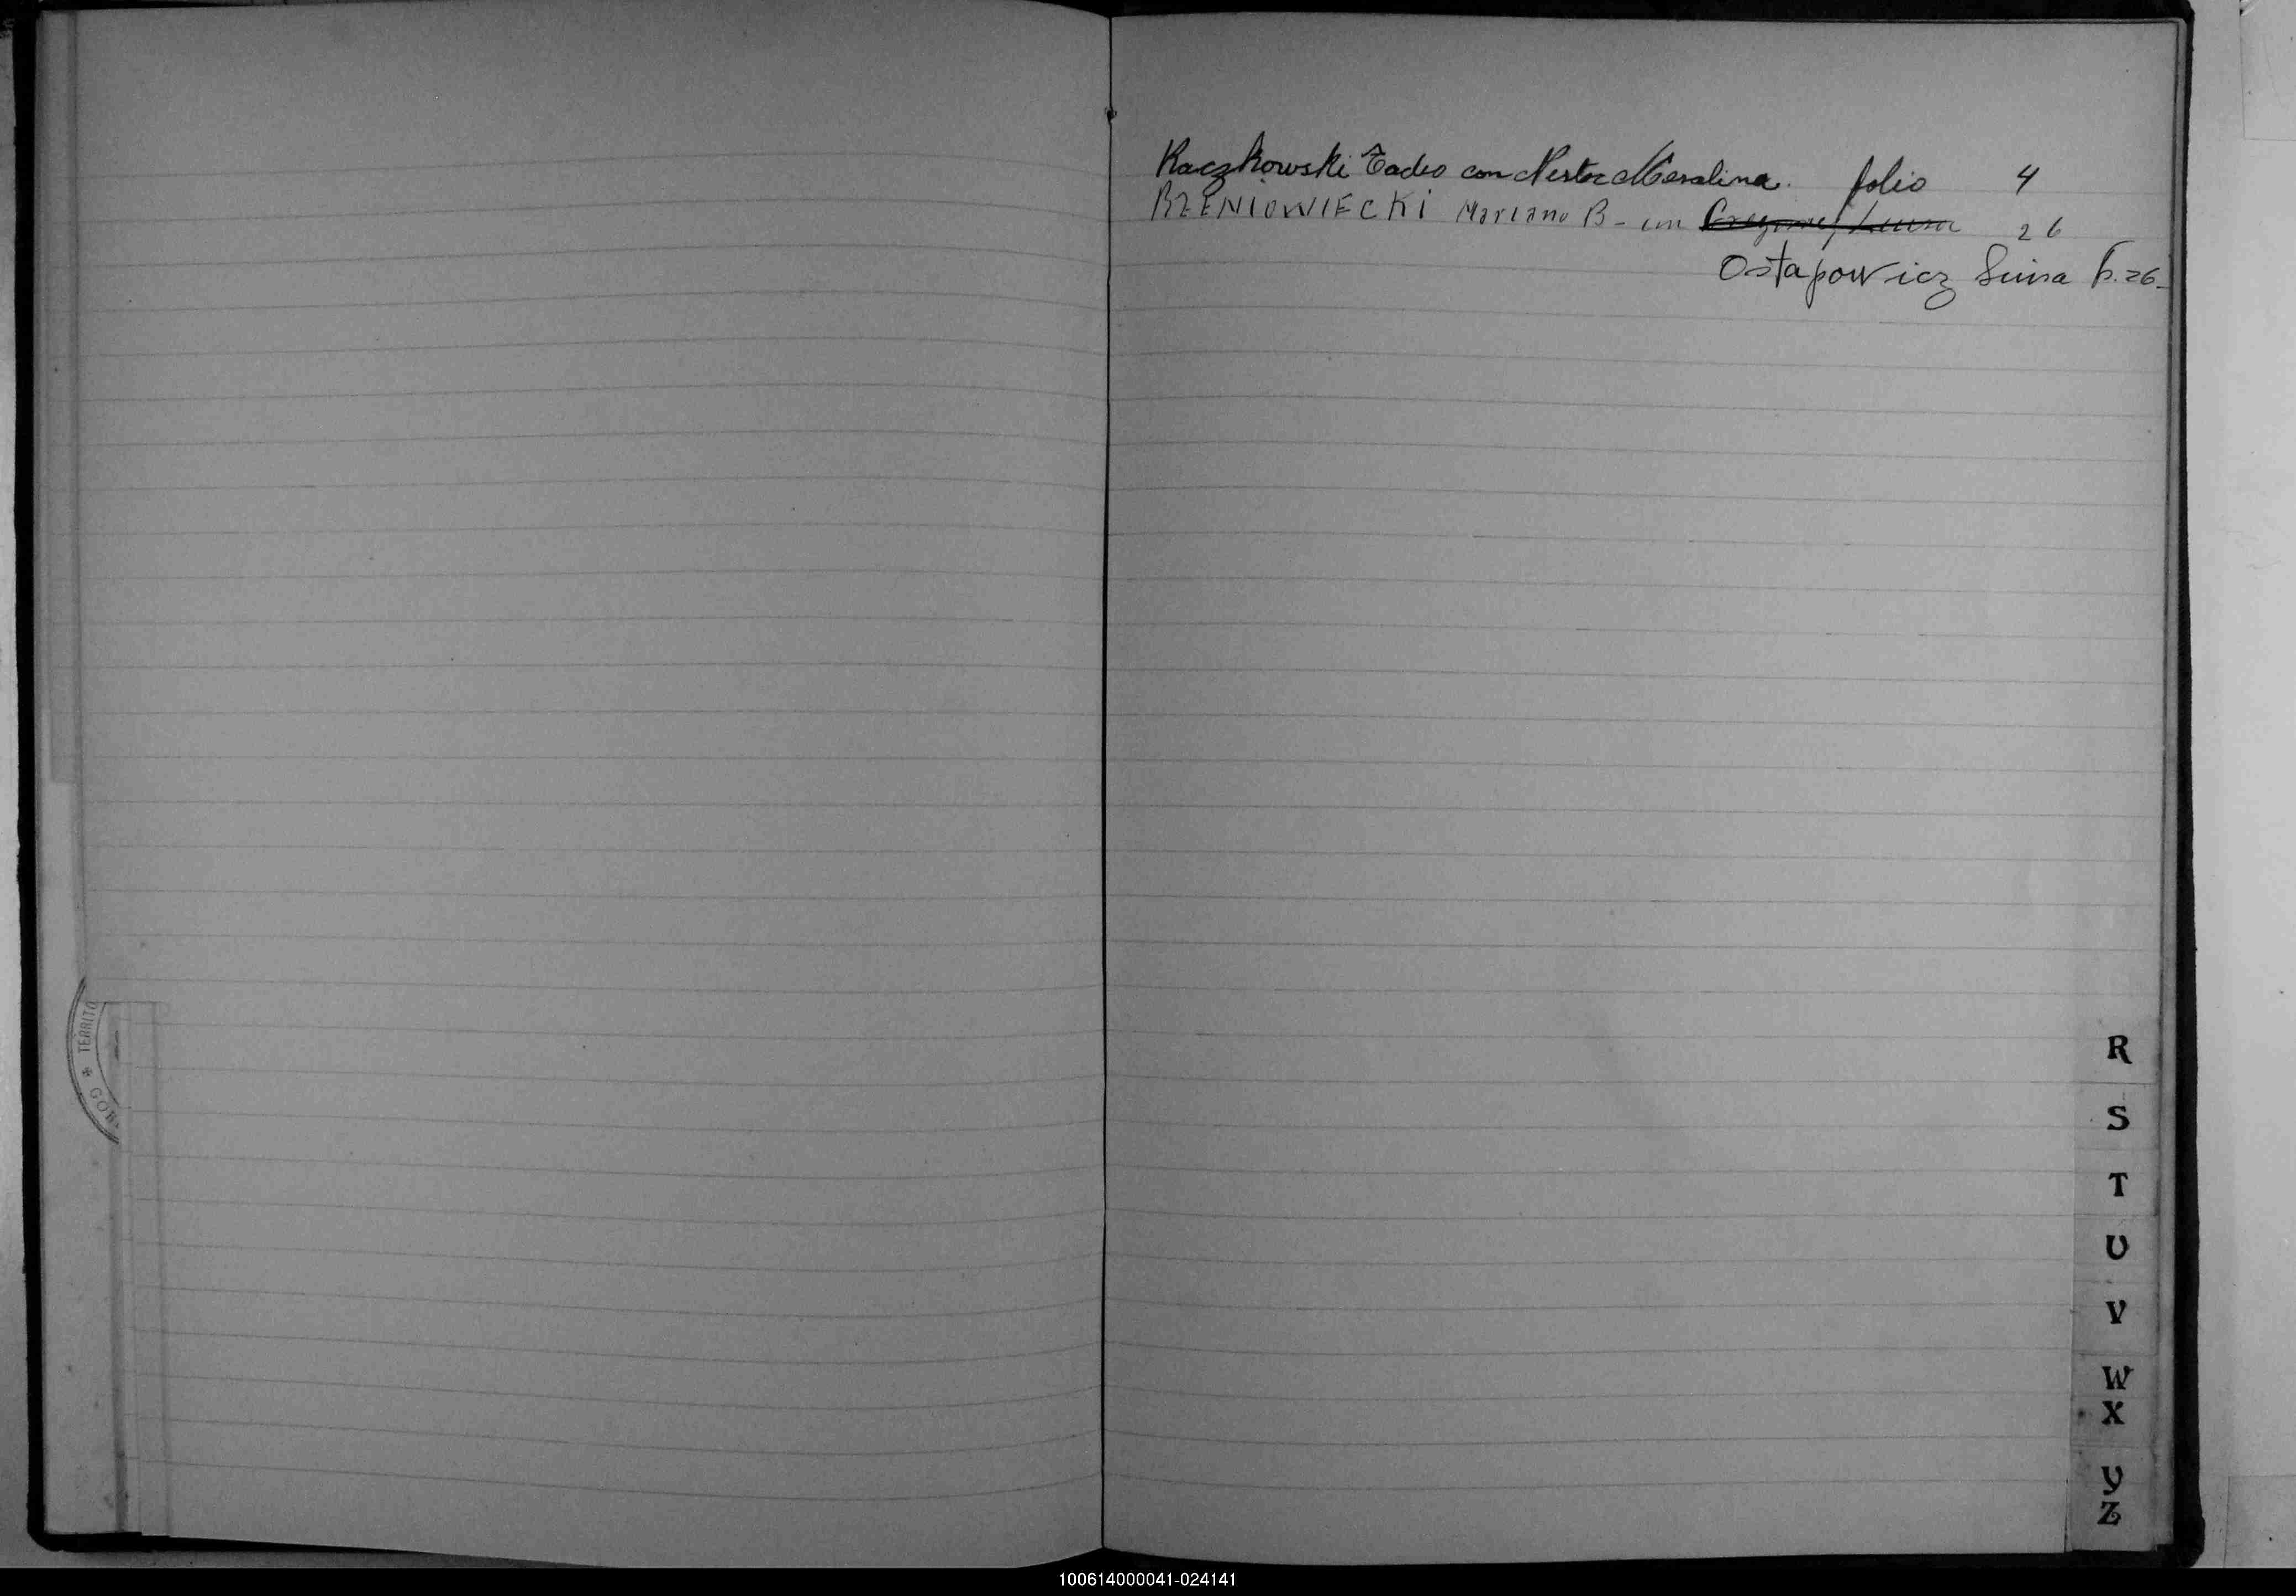 Raczkowski Tadeo con Nestor Meralina. folio 4
RZENIOWIECKI Mariano B - con Luisa 26
Ostapowicz Luisa f. 26-
TERRITO
GO
R
S
T
U
V
W
X
Y
Z
100614000041-024141